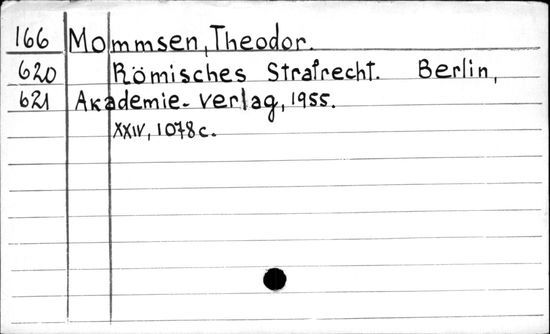 166 Mommsen, Theodor.
620 Römisches Strafrecht. Berlin,
621 Akademie-Verlag, 1955.
XXIV, 1078 c.